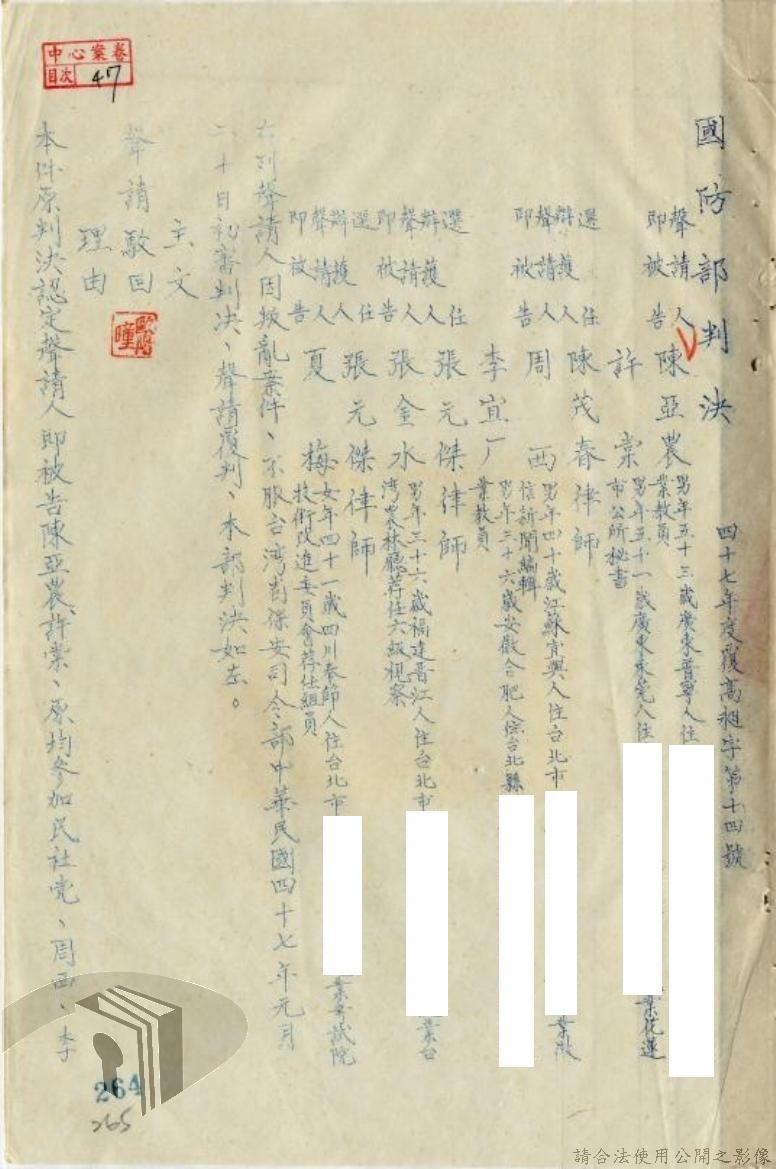 中心案卷
目次 47
國防部判決
四十七年度覆高㨗字第十四號
聲請人
即被告
陳亞農
男年五十三歲廣東普寧人住
業教員
許棠
男年五十一歲廣東東莞人住 業花蓮
市公所秘書
選任
辯護人
陳茂春律師
聲請人
即被告
周西
男年四十歲江蘇宜興人住台北市 業徵
信新聞編輯
李宜厂
男年三十六歲安徽合肥人住台北縣
業教員
選任
辯護人
張元傑律師
聲請人
即被告
張金水
男年三十六歲福建晋江人住台北市 業台
湾農林廳荐任六級視察
選任
辯護人
張元傑律師
聲請人
即被告
夏梅
女年四十一歲四川奉節人住台北市 業考試院
技術改進委員會荐任組員
右列聲請人因叛亂案件、不服台湾省保安司令部中華民國四十七年元月
二十日初審判决、聲請覆判、本部判決如左。
主文
聲請駁回
理由
本件原判决認定聲請人即被告陳亞農、許棠、原均參加民社党、周西、李
264
265
請合法使用公開之影像